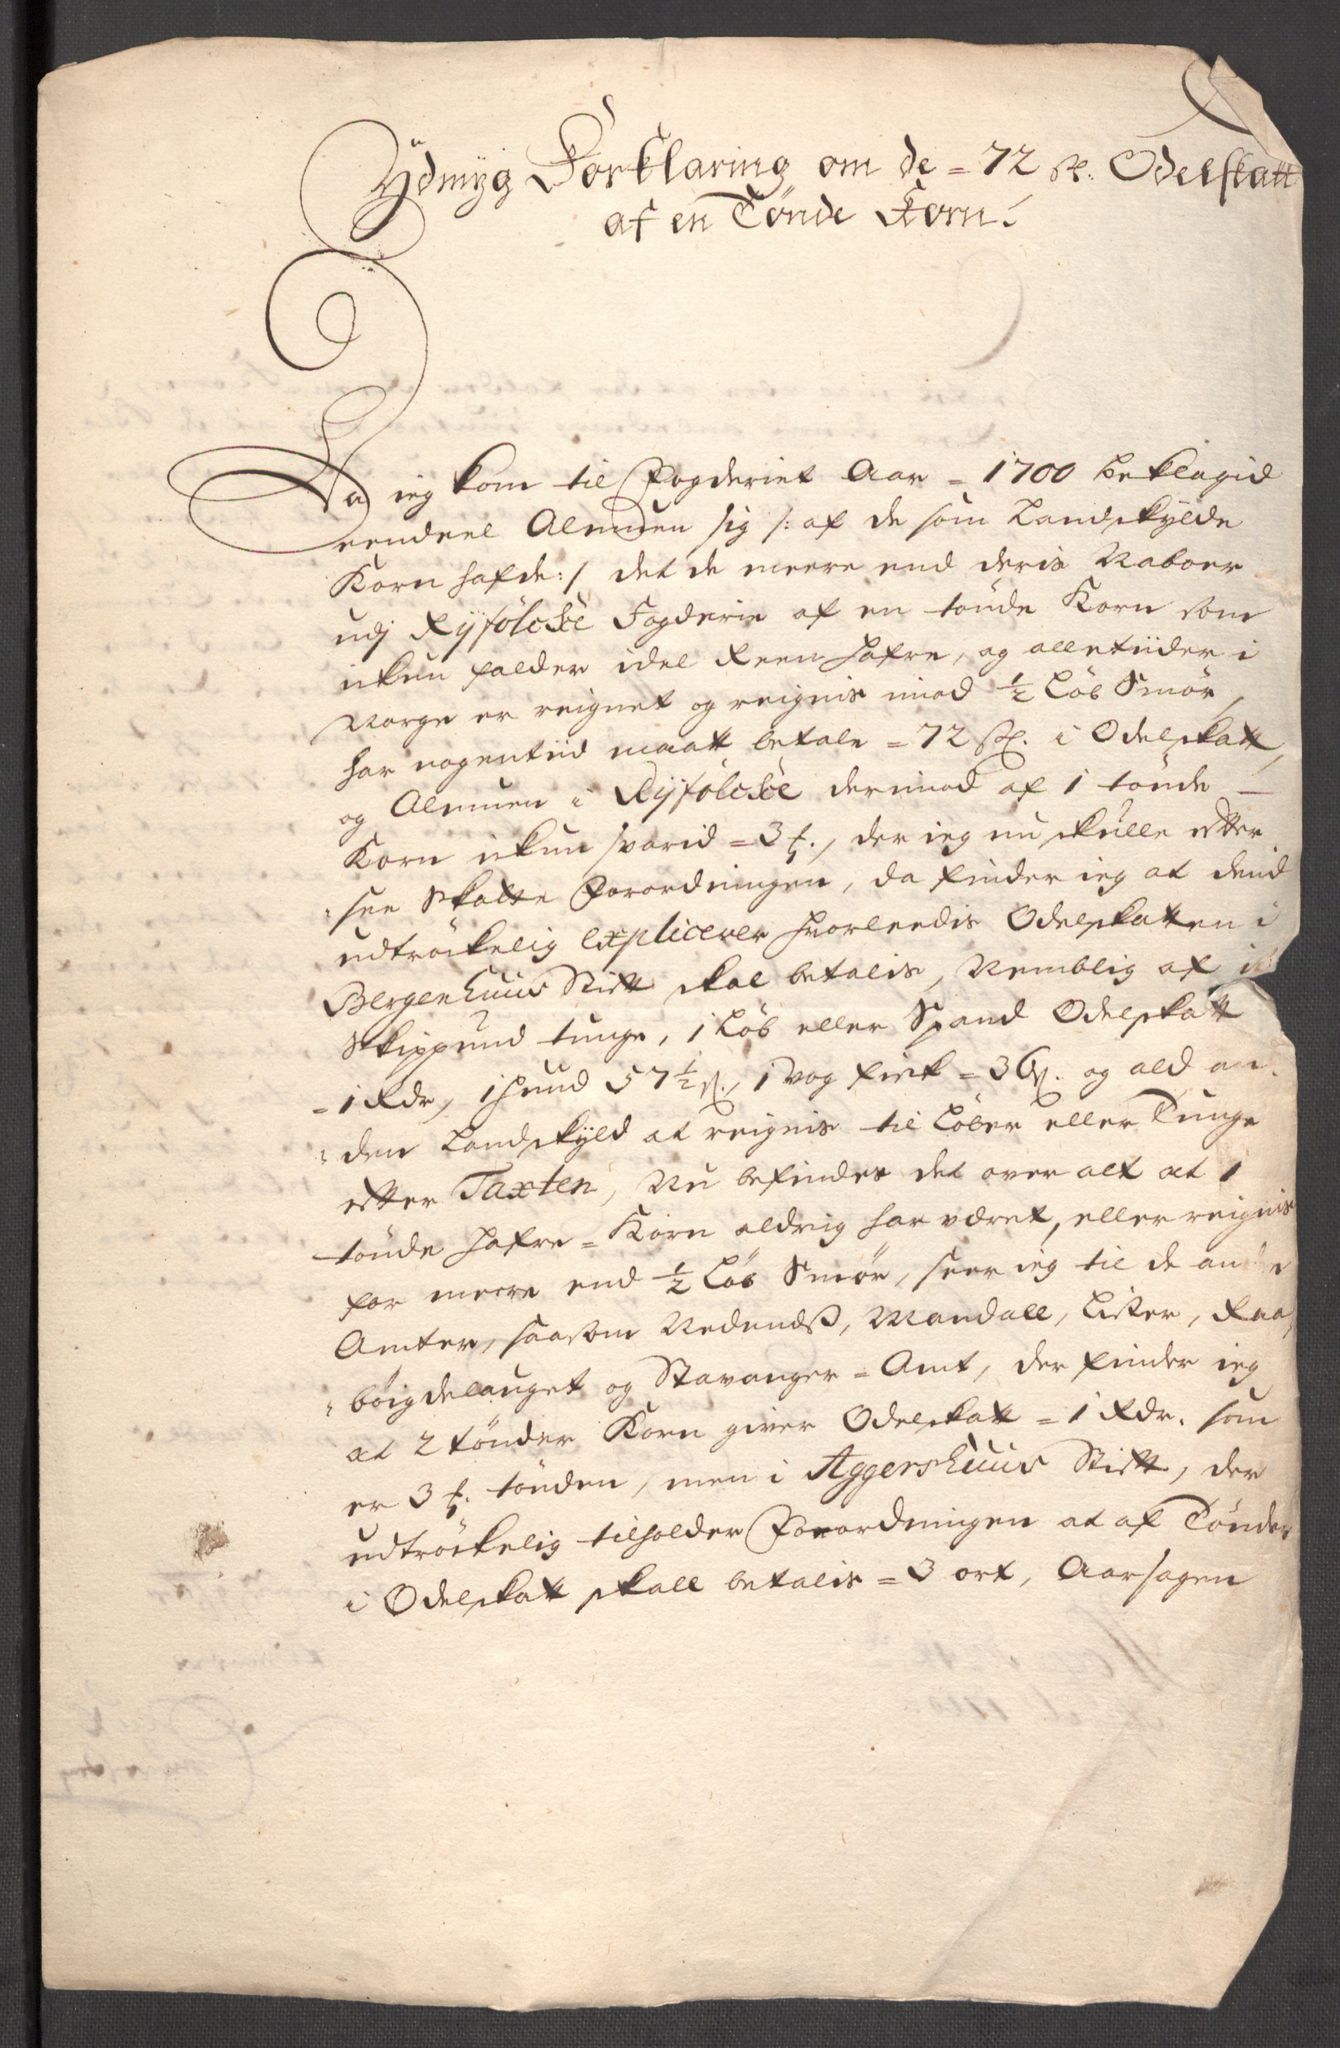 Ydmyg Forklaring om de = 72 sk. Odelskatt
af en Tønde Korn.
Da ieg kom til Fogderiet Aar = 1700 beklagid
eendeel Almuen sig /: af de som Landskylde
Korn hafde :/ det de meere end deris Naboer
udj Ryfölckè Fogderie af en tönde Korn som
ikun falder idel Reen Hafre, og alletiider i
Norge er reignet og reignis imod ½ Löb Smör,
har nogentiid maatt betale = 72 sk. i Odelskatt,
og Almuen i Ryfölckè derimod af 1 tönde
Korn ikun svarid = 3 ₰., der ieg nu skulle efter
see Skatte Forordningen, da finder ieg at dend
udtröckelig explicerer hvorleedis Odelskatten i
Bergenhuus Stift skal betalis, Nemblig af
Skippund tunge, 1 Löb eller Spand Odelskatt
= 1 Rdr, 1 Huud 57½ s., 1 vog fisk = 36 s. og ald an-
den Landskyld at reignis til Löber eller Tunge
efter Taxten, Nu befindes det over alt at 1
tönde Hafre = Korn aldrig har været, eller reignis
for meere end ½ Löb Smör, seer ieg til de andre
Amter, saasom Nedends, Mandall, Lister, Raa-
böigdelauget og Stavanger = Amt, der finder ieg
at 2 tönder Korn giver Odelskatt = 1 Rdr. som
er 3 ₰. tönden, men i Aggershuus Stift, der
udtröckelig tilholder Forordningen at af Tönder
i Odelskatt skall betalis = 3 ort, Aarsagen